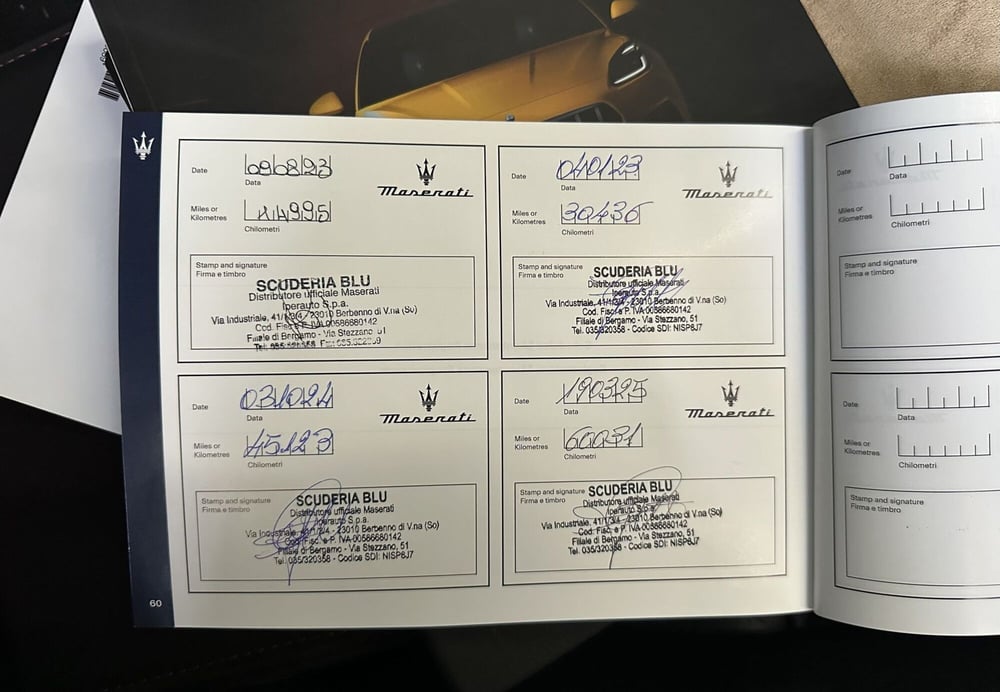 Date 090823
Data
Maserati
Miles or
Kilometres 14995
Chilometri
Stamp and signature
Firma e timbro
SCUDERIA BLU
Distributore ufficiale Maserati
Iperauto S.p.a.
Via Industriale, 41/1/3/4 - 23010 Berbenno di V.na (So)
Cod. Fisc. e P. IVA 00586680142
Filiale di Bergamo - Via Stezzano, 51
Date 040123
Data
Maserati
Miles or
Kilometres 30436
Chilometri
Stamp and signature
Firma e timbro
SCUDERIA BLU
Distributore ufficiale Maserati
Iperauto S.p.a.
Via Industriale, 41/1/3/4 - 23010 Berbenno di V.na (So)
Cod. Fisc. e P. IVA 00586680142
Filiale di Bergamo - Via Stezzano, 51
Tel. 035/320358 - Codice SDI: NISP8J7
Date 031024
Data
Maserati
Miles or
Kilometres 45123
Chilometri
Stamp and signature
Firma e timbro
SCUDERIA BLU
Distributore ufficiale Maserati
Iperauto S.p.a.
Via Industriale, 41/1/3/4 - 23010 Berbenno di V.na (So)
Cod. Fisc. e P. IVA 00586680142
Filiale di Bergamo - Via Stezzano, 51
Tel. 035/320358 - Codice SDI: NISP8J7
Date 190325
Data
Maserati
Miles or
Kilometres
Chilometri
Stamp and signature
Firma e timbro
SCUDERIA BLU
Distributore ufficiale Maserati
Iperauto S.p.a.
Via Industriale, 41/1/3/4 - 23010 Berbenno di V.na (So)
Cod. Fisc. e P. IVA 00586680142
Filiale di Bergamo - Via Stezzano, 51
Tel. 035/320358 - Codice SDI: NISP8J7
60
Date
Data
Miles or
Kilometres
Chilometri
Stamp and signature
Firma e timbro
Date
Data
Miles or
Kilometres
Chilometri
Stamp and signature
Firma e timbro